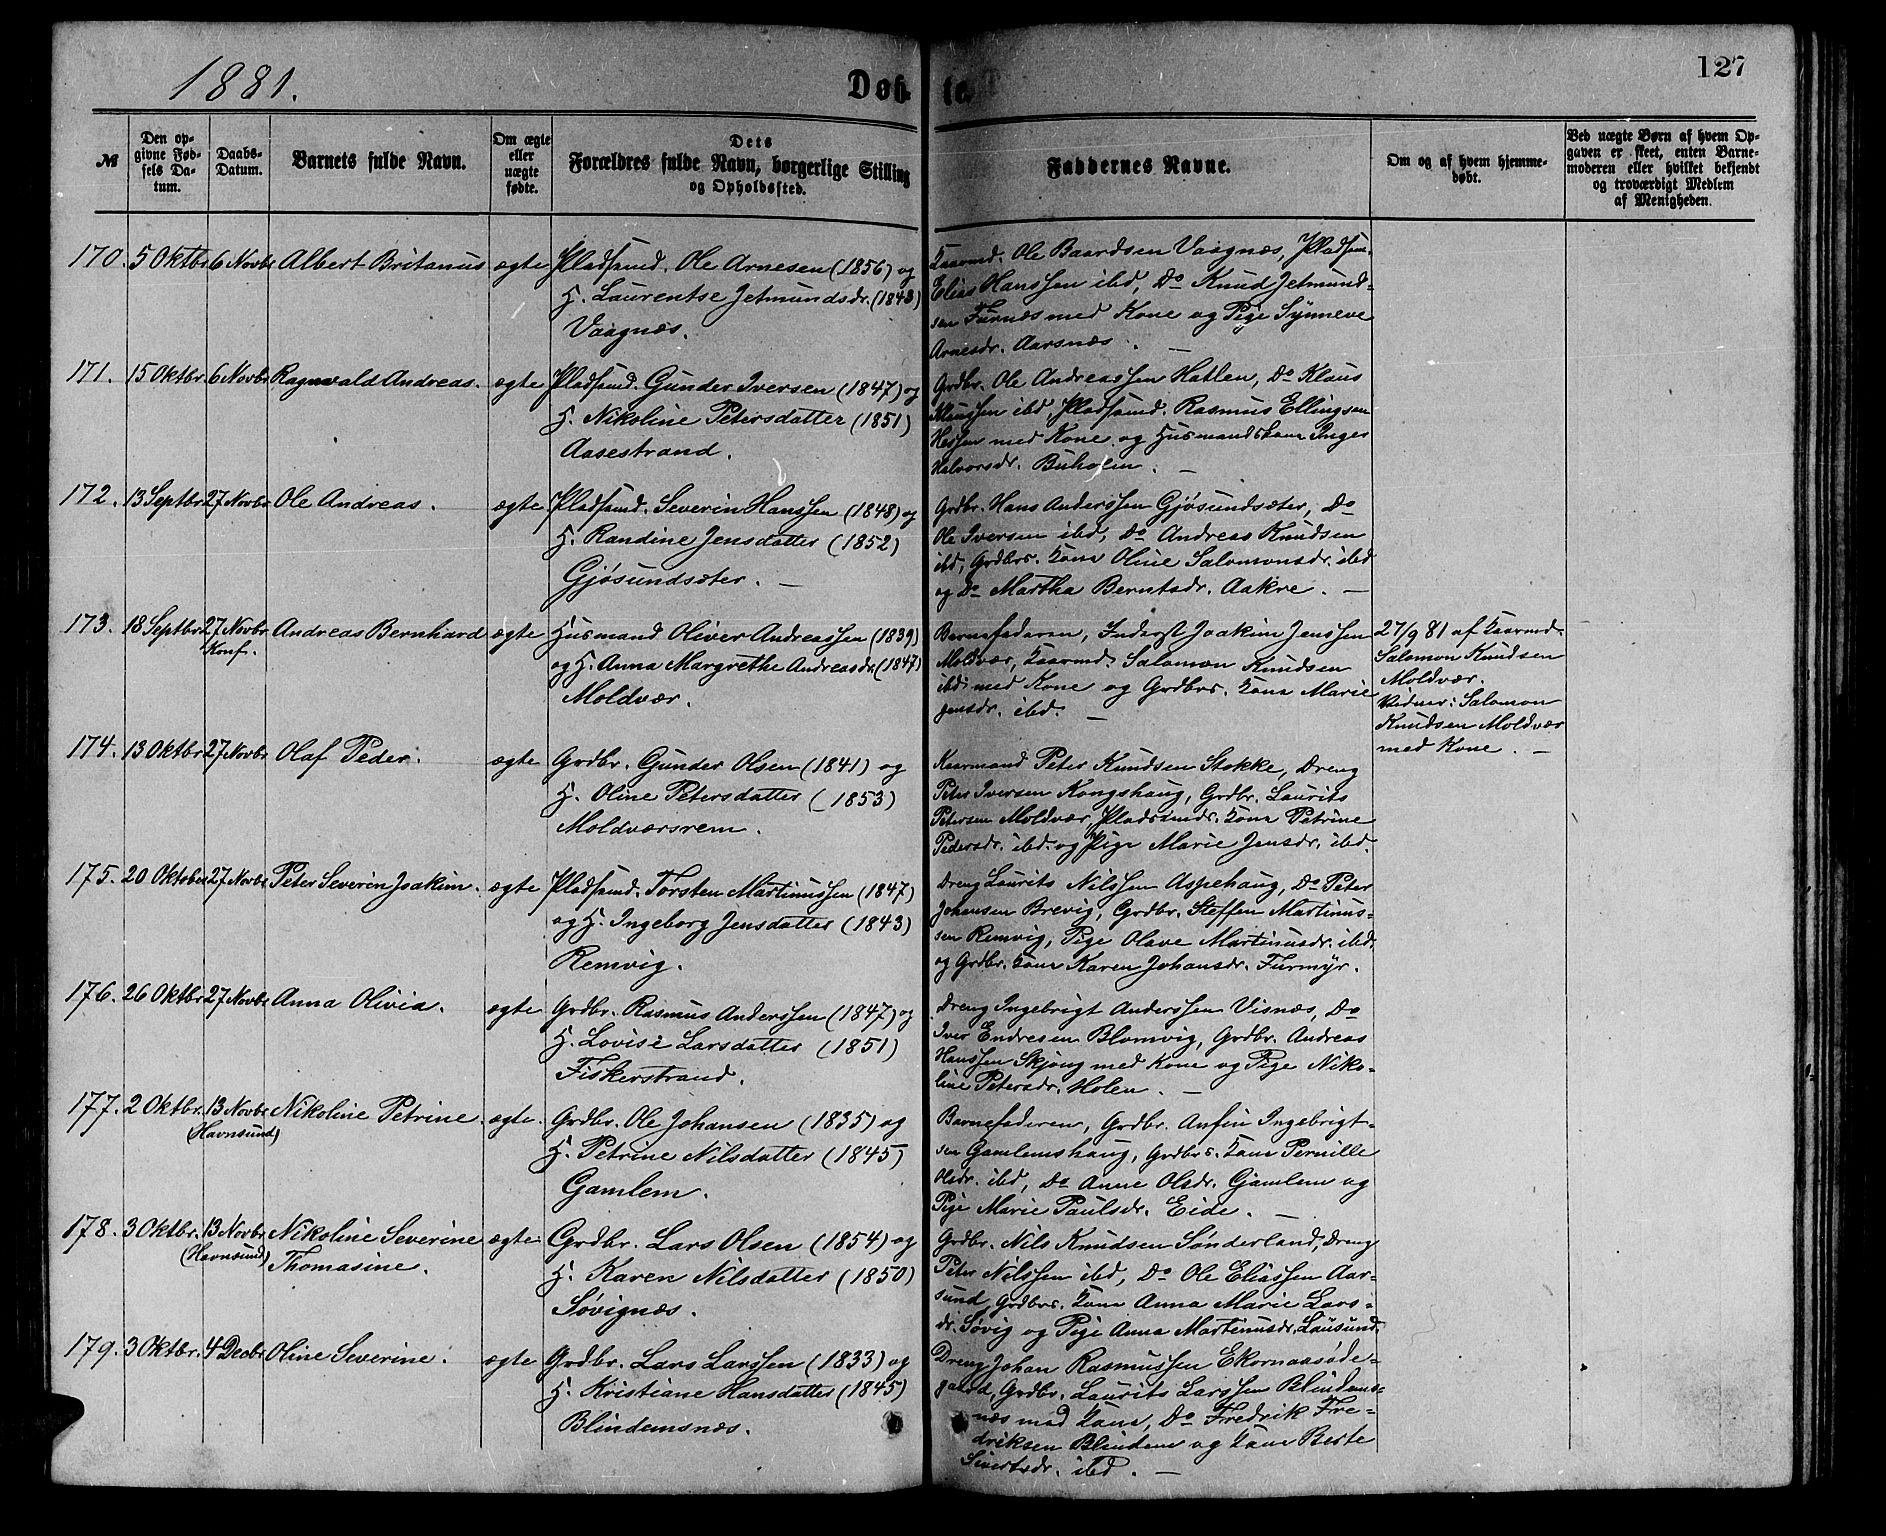 1881.
Døb
te.
127
№
Den op-
givne Fød-
sels Da-
tum.
Daabs-
Datum.
Barnets fulde Navn.
Om ægte
eller
uægte
fødte.
Dets
Forældres fulde Navn, borgerlige Stilling
og Opholdssted.
Faddernes Navne.
Om og af hvem hjemme-
døbt.
Ved uægte Børn af hvem Op-
gaven er skeet, enten Barne-
moderen eller hvilket bekjendt
og troværdigt Medlem
af Menigheden.
170. 5 Oktbr 6 Novbr Albert Britanus ægte Pladsmd. Ole Arnesen (1856) og
H. Laurentse Jetmundsdr. (1843)
Vaagnæs.
Kaarmd. Ole Baardsen Vaagnæs, Pladsm.
Elias Hanssen ibd, Do Knud Jetmund-
sen Furnæs med Kone og Pige Synneve
Arnesdr. Aarsnæs. —
171. 15 Oktbr. 6 Novbr Ragnvald Andreas. ægte Pladsmd. Gunder Iversen (1847) og
H. Nikoline Petersdatter (1851)
Aasestrand.
Grdbr. Ole Andreassen Hatlen, Do Klaus
Klaussen ibd, Pladsmd. Rasmus Ellingsen
Hessen med Kone og Husmandskone Inger
Halvorsdr. Buholm. —
172. 13 Septbr 27 Novbr Ole Andreas. ægte Pladsmd. Severin Hanssen (1848) og
H. Randine Jensdatter (1852)
Gjøsundsæter. —
Grdbr. Hans Anderssen Gjøsundsæter, Do
Ole Iversen ibd, Do Andreas Knudsen
ibd, Grdbrs. Kone Oline Salomonsdr. ibd
og Do Martha Berntsdr. Aakre. —
173. 18 Septbr 27 Novbr Andreas Bernhard ægte Husmand Oliver Andreassen (1839)
Konf.
og H. Anna Margrethe Andreasdr. (1847)
Moldvær.
Barnefaderen, Inderst Joakim Jenssen
Moldvær, Kaarmd. Salomon Knudsen
ibd med Kone og Grdbrs. Kone Marie
Jensdr. ibd. —
27/9 81 af Kaarmd.
Salomon Knudsen
Moldvær.
Vidner: Salomon
Knudsen Moldvær
med Kone. —
174. 13 Oktbr 27 Novbr Olaf Peder. ægte Grdbr. Gunder Olsen (1841) og
H. Oline Petersdatter (1853)
Moldværsrem.
Kaarmand Peter Knudsen Stokke, Dreng
Peter Iversen Kongshaug, Grdbr. Laurits
Petersen Moldvær, Pladsmds. Kone Petrine
Pedersdr. ibd. og Pige Marie Jensdr. ibd.
175. 20 Oktober 27 Novbr. Peter Severin Joakim. ægte Pladsmd. Torsten Martinussen (1847)
og H. Ingeborg Jensdatter (1843)
Remvig.
Dreng Laurits Nilssen Aspehaug, Do Peter
Johansen Brevig, Grdbr. Steffen Martinus-
sen Remvig, Pige Olave Martinusdr. ibd.
og Grdbr. Kone Karen Johansdr. Furmyr.
176. 26 Oktbr 27 Novbr Anna Olivia. ægte Grdbr. Rasmus Anderssen (1847) og
H. Lovise Larsdatter (1851)
Fiskerstrand.
Dreng Ingebrigt Anderssen Visnæs, Do
Iver Endresen Blomvig, Grdbr. Andreas
Hanssen Skjong med Kone og Pige Niko-
line Petersdr. Holen. —
177. 2 Oktbr. 13 Novbr Nikoline Petrine. ægte. Grdbr. Ole Johansen (1835) og
(Havnsund)
H. Petrine Nilsdatter (1845)
Gamlem.
Barnefaderen, Grdbr. Anfin Ingebrigt-
sen Gamlemshaug, Grdbrs. Kone Pernille
Olsdr. ibd, Do Anne Olsdr. Gamlem og
Pige Marie Paulsdr. Eide. —
178. 3 Oktbr. 13 Novbr. Nikoline Severine ægte Grdbr. Lars Olsen (1854) og
(Havnsund) Thomasine.
H. Karen Nilsdatter (1850)
Søvignæs.
Grdbr. Nils Knudsen Sønderland, Dreng
Peter Nilssen ibd, Do Ole Eliassen Aar-
sund, Grdbrs. Kone Anna Marie Lars-
dr. Søvig og Pige Anna Martinusdr. Lausund.
179. 3 Oktbr. 4 Decbr Oline Severine. ægte Grdbr. Lars Larssen (1833) og
H. Kristiane Hansdatter (1845)
Blindemsnæs.
Dreng Johan Rasmussen Ekornaasøde-
gaard, Grdbr. Laurits Larssen Blindems-
næs med Kone, Do Fredrik Fre-
driksen Blindem og Kone Berte
Sivertsdr. ibd. —